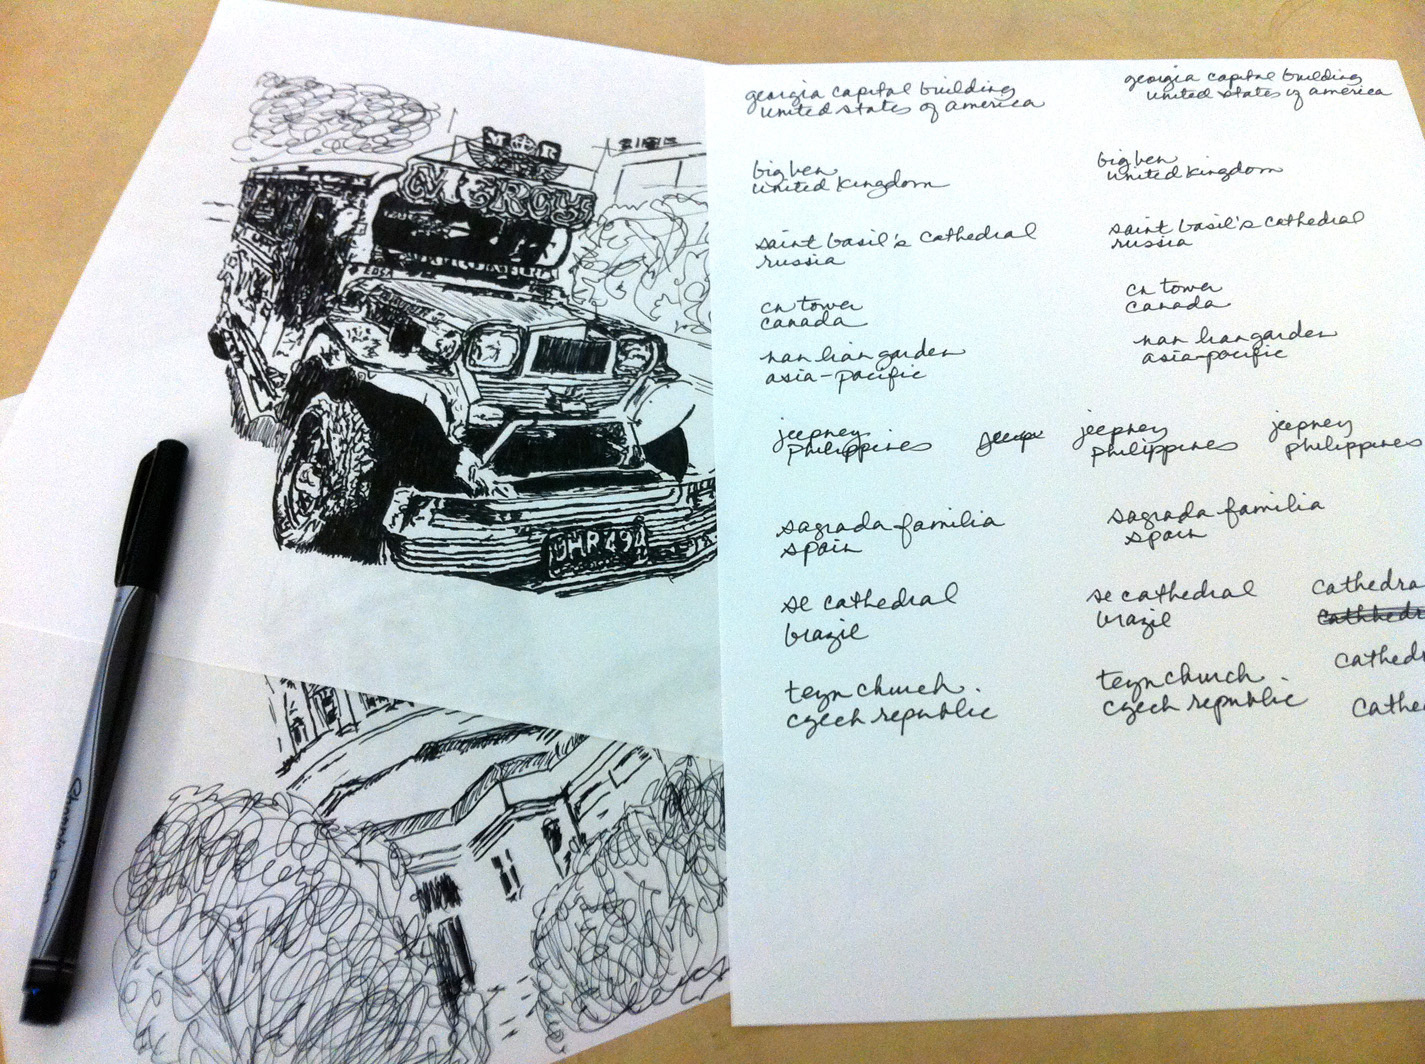 M R
MERCY
georgia capital building
united states of america
big ben
united kingdom
saint basil's cathedral
russia
cn tower
canada
nan lian garden
asia-pacific
jeepney
philippines
sagrada familia
spain
se cathedral
brazil
teyn church.
czech republic
georgia capital building
united states of america
big ben
united kingdom
saint basil's cathedral
russia
cn tower
canada
nan lian garden
asia-pacific
jeepney
philippines
jeepney
philippines
sagrada familia
spain
se cathedral
brazil
teyn church.
czech republic
cathedra
cathedr
cathe